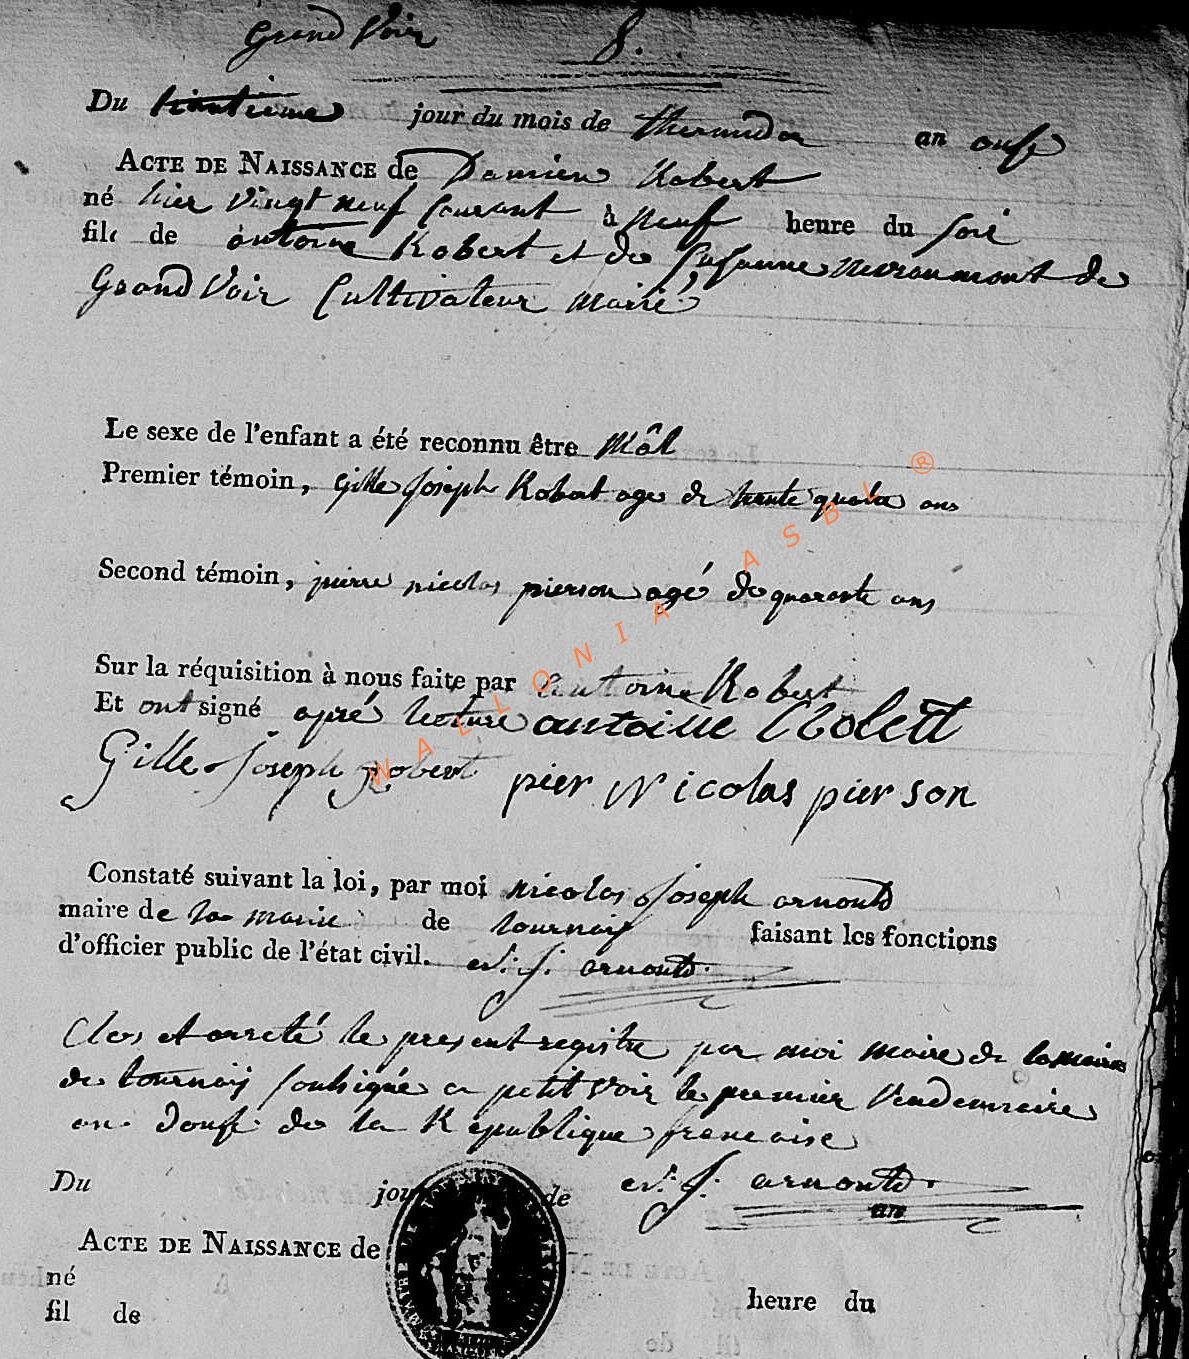 Grand Voir 8.
Du trantieme jour du mois de thermidor an onse
ACTE DE NAISSANCE de Damien Robert
né hier vingt neuf courant à neuf heure du soir
fils de antoine Robert et de Susanne nevraumont de
Grand Voir Cultivateur Marié
Le sexe de l'enfant a été reconnu être Mâl
Premier témoin, Gille Joseph Robert age de trente quatre ans
Second témoin, pierre nicolas pierson agé de quarante ans
Sur la réquisition à nous faite par antoine Robert
Et ont signé après lecture antoine Robert
Gille Joseph Robert pier Nicolas pierson
Constaté suivant la loi, par moi nicolas Joseph arnould
maire de la mairie de tournay faisant les fonctions
d'officier public de l'état civil. N: J: arnould
Clos et arreté le present registre par moi maire de la mairie
de tournay soussigné a petit voir le premier Vendemiaire
an douse de la Republique francaise
N: J: arnould
Du jour de an
ACTE DE NAISSANCE de
né heure du
fil de
WALLONIA ASBL ®